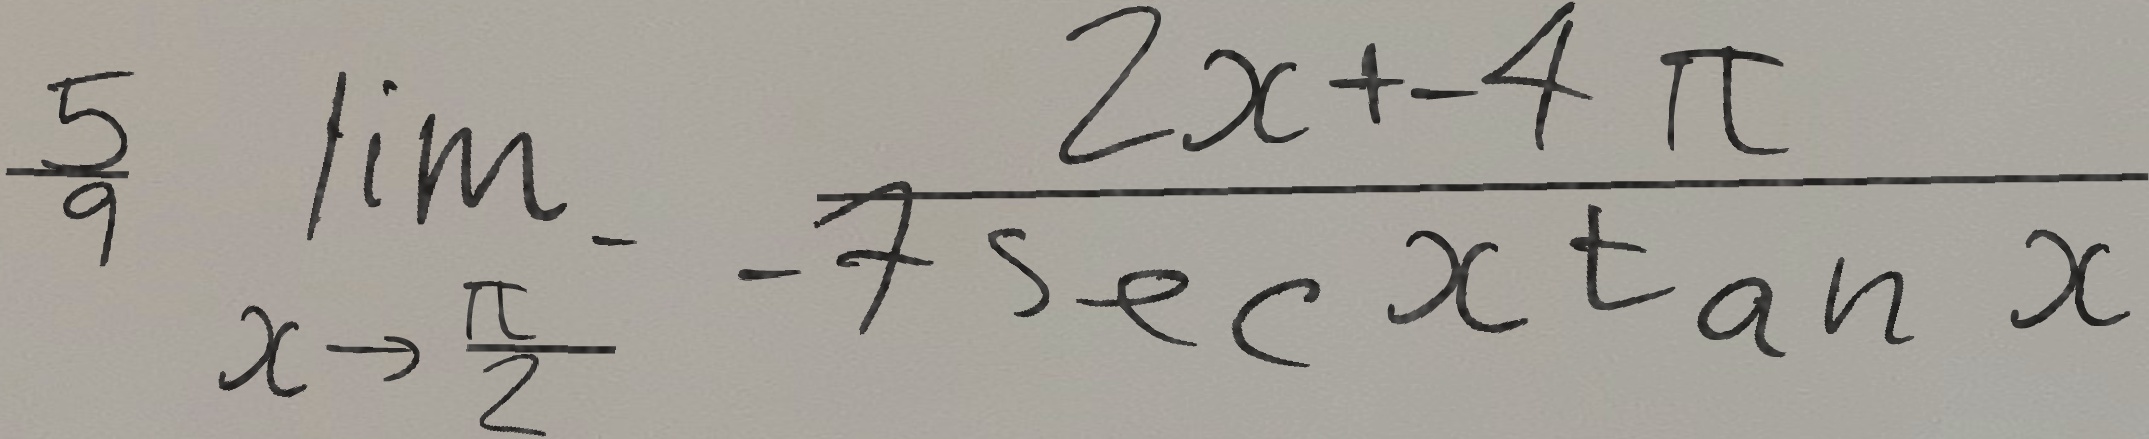 \frac{5}{9} \lim_{x \to \frac{\pi}{2}^{-}} \frac{2x+-4\pi}{-7\sec x\tan x}